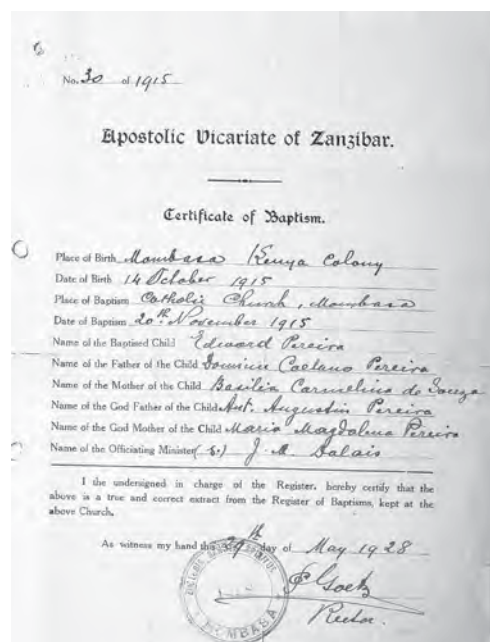 No. 30 of 1915
Apostolic Vicariate of Zanzibar.
Certificate of Baptism.
Place of Birth Mombasa Kenya Colony
Date of Birth 14 October 1915
Place of Baptism Catholic Church, Mombasa
Date of Baptism 20th November 1915
Name of the Baptised Child Edward Pereira
Name of the Father of the Child Dominic Caetano Pereira
Name of the Mother of the Child Basilia Carmelina de Souza
Name of the God Father of the Child Ant. Augustin Pereira
Name of the God Mother of the Child Maria Magdalena Pereira
Name of the Officiating Minister (s.) J. M. Dalais
I the undersigned in charge of the Register, hereby certify that the
above is a true and correct extract from the Register of Baptisms, kept at the
above Church.
As witness my hand this 29th day of May 1928
P Goetz
Rector.
MOMBASA